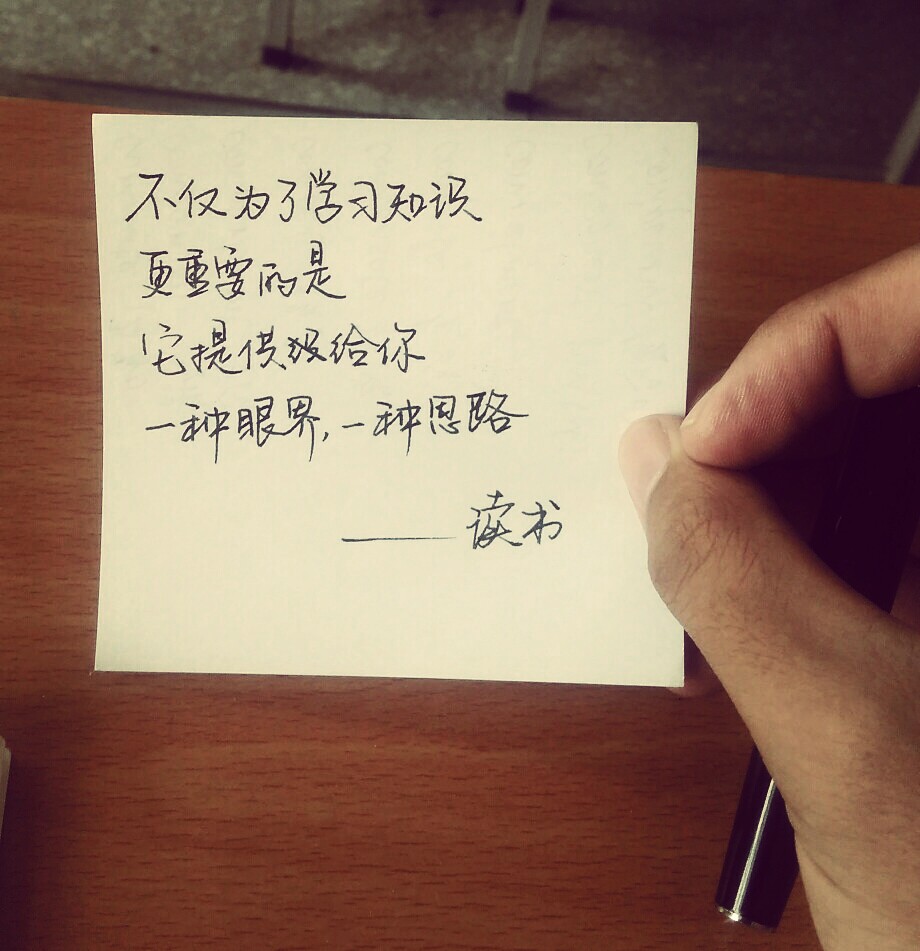 不仅为了学习知识
更重要的是
它提供给你
一种眼界,一种思路
——读书